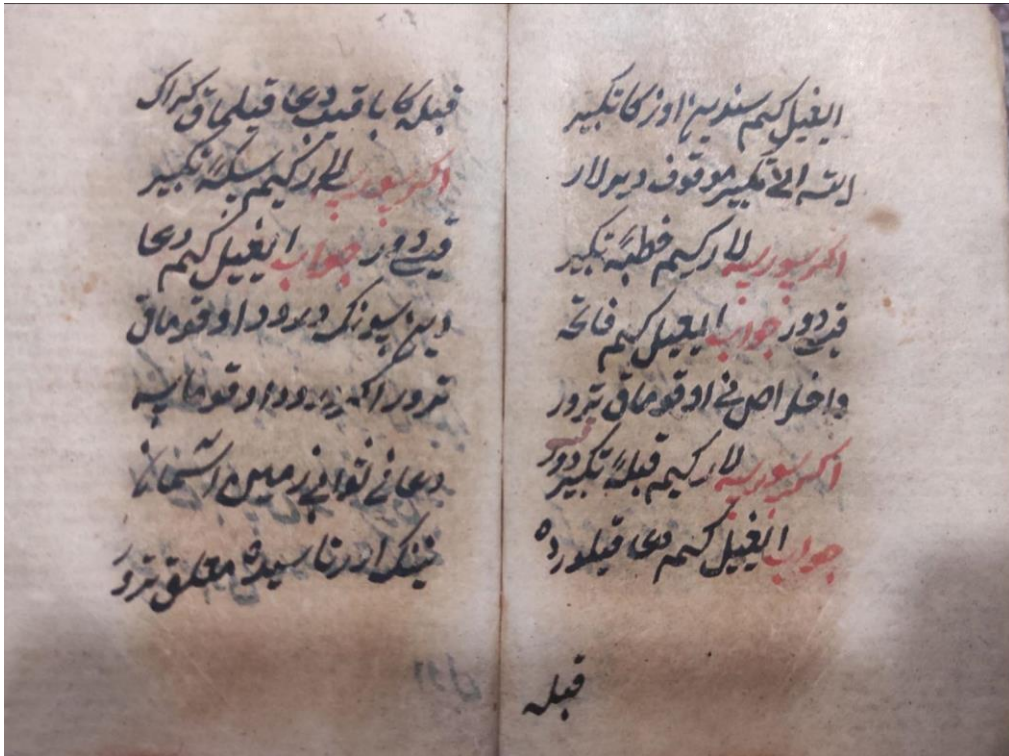 ایغیل کیم سندین اوزکا تکبیر
ایتسه انی تکبیر موقوف دیرلار
اکر سورسه لار کیم خطبهٔ تکبیر
قیدور جواب ایغیل کیم فاتحه
و اخلاص نی اوقوماق ترور
اکر سورسه لار کیم قبلهٔ تکبیر دور
جواب ایغیل کیم دعا قیلورده
قبله
قبله کا باقیب دعا قیلماق کراک
اکر سورسه لار کیم تکبیر
قیدور جواب ایغیل کیم دعا
دین سونک درود اوقوماق
ترور اکر درود اوقوماسه
دعا نی ثوابی زمین و آسمان
نینک اورتاسیده معلق ترور